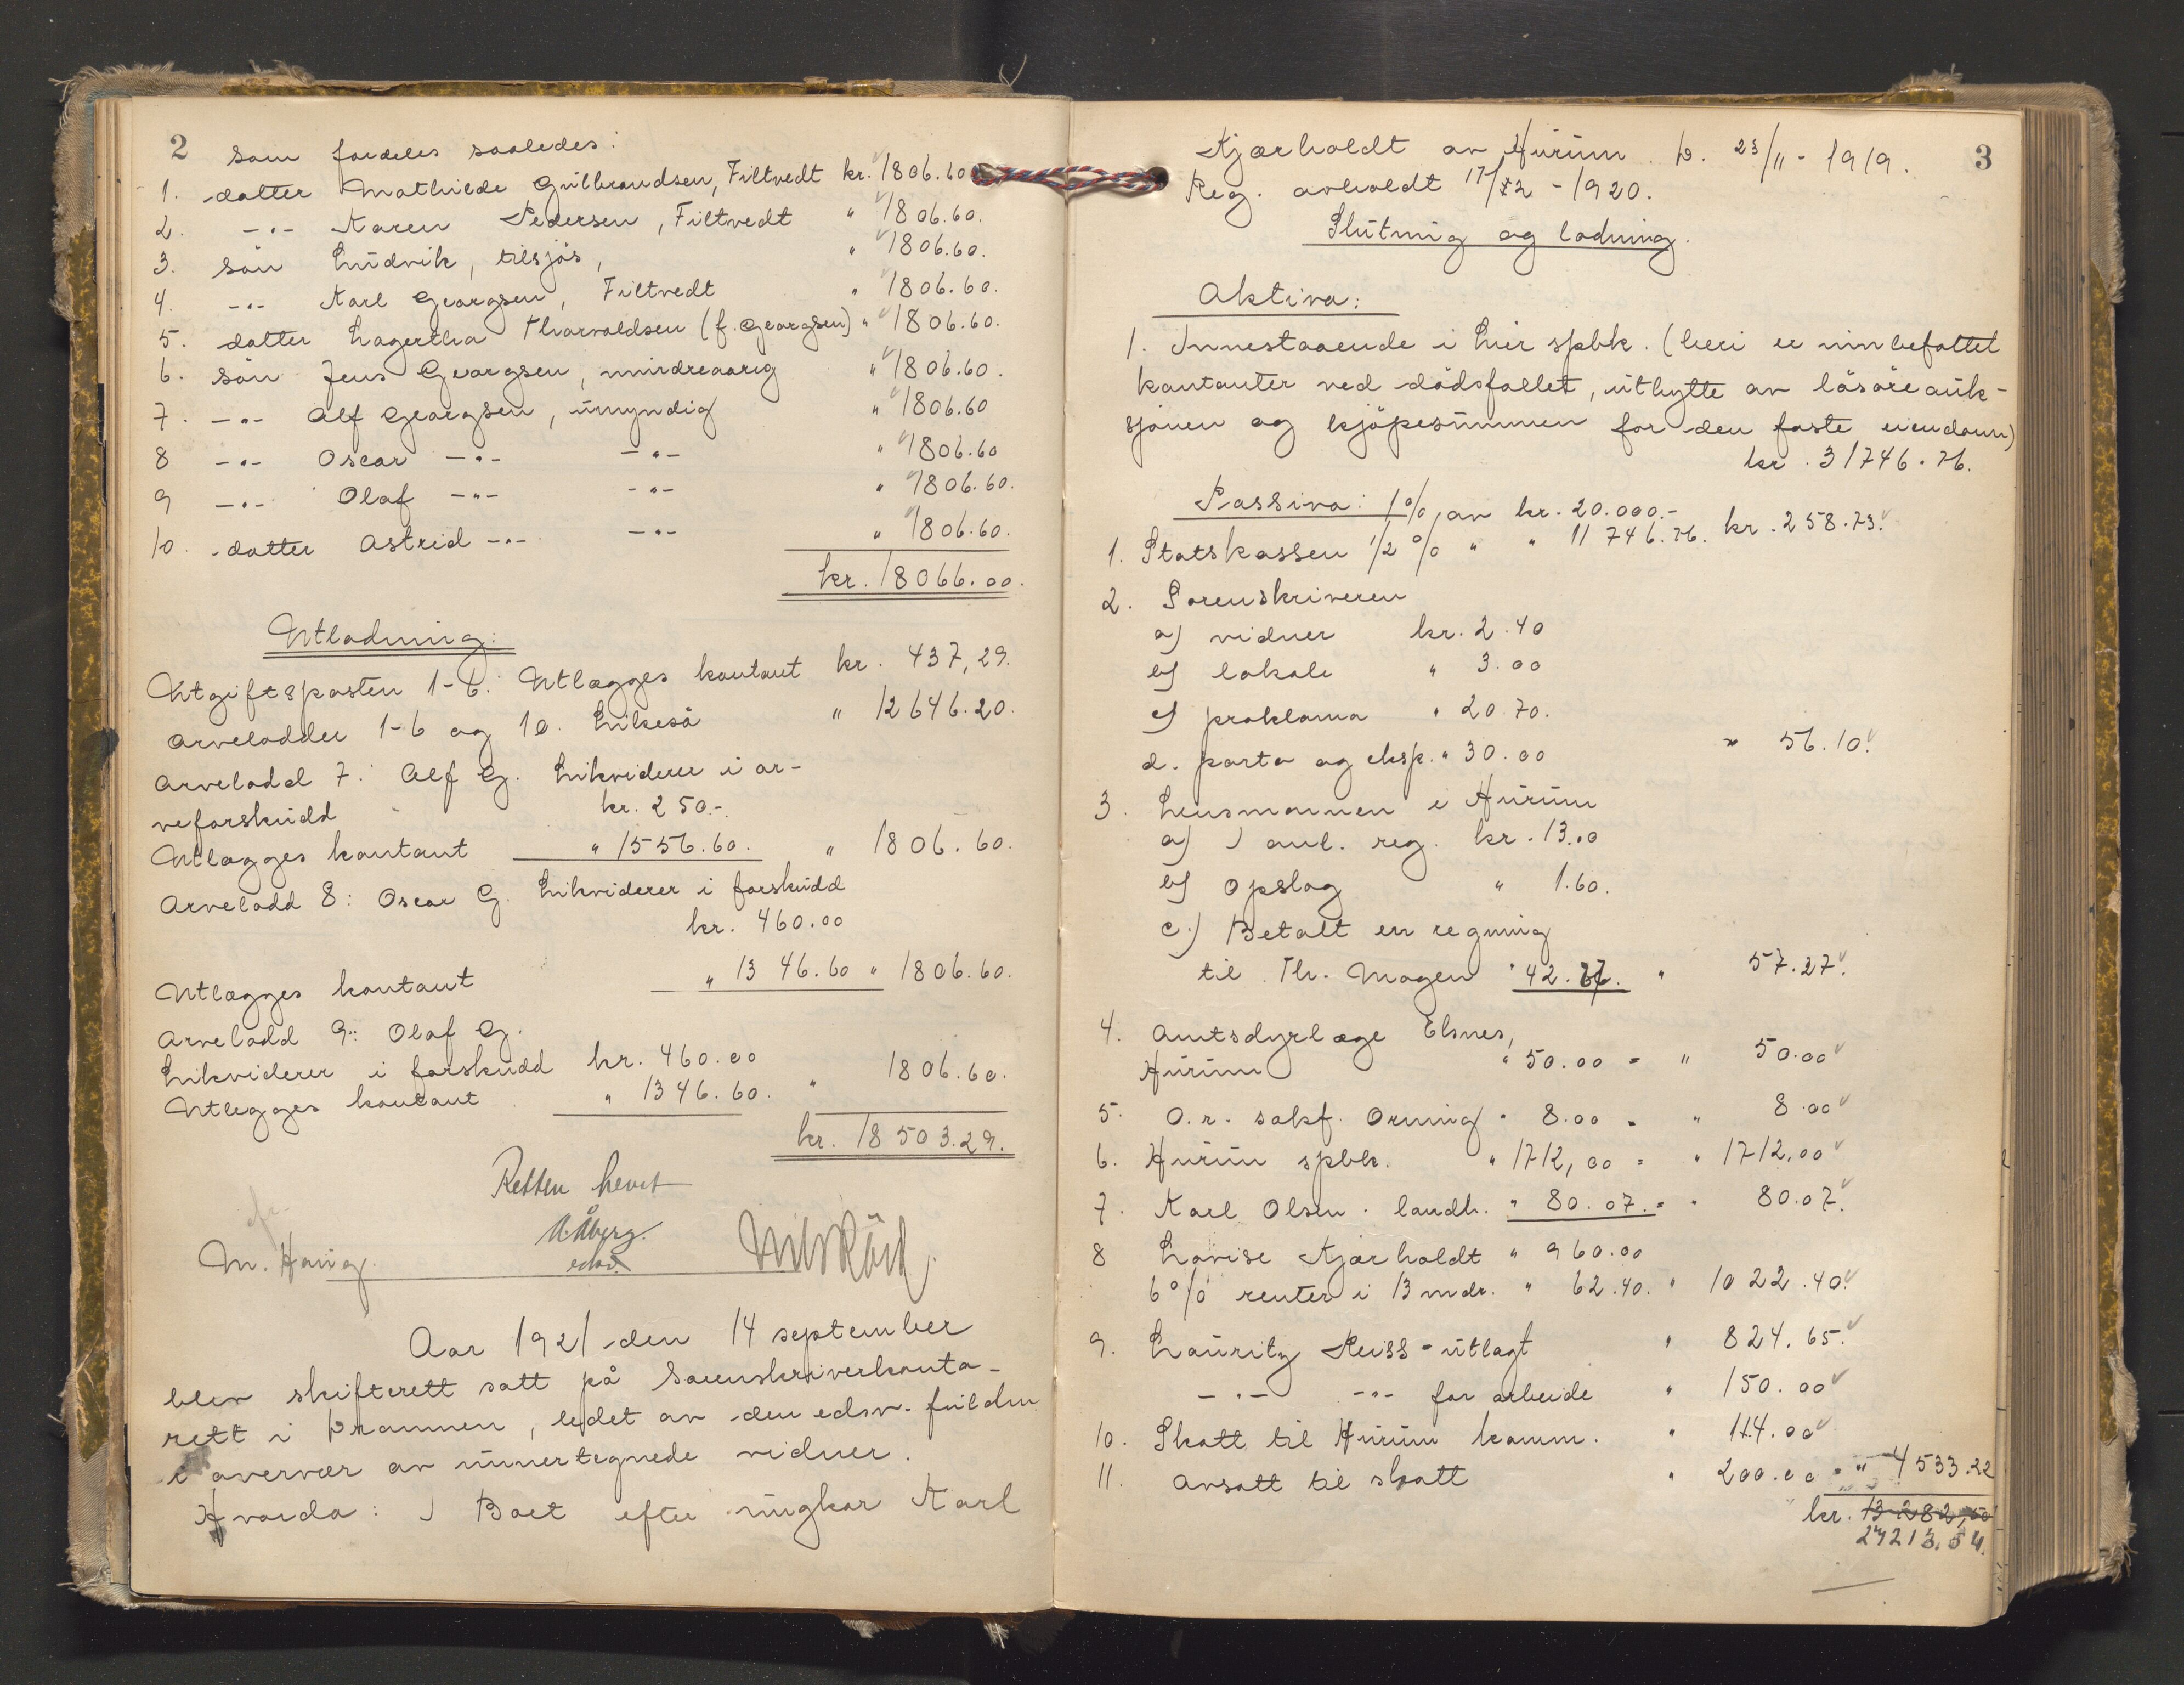 2
som fordeles saaledes:
1. datter Mathilde Gulbrandsen, Filtvedt kr. 1806.60
2. -"- Karen Pedersen, Filtvedt " 1806.60.
3. sön Ludvik, tilsjös, " 1806.60.
4. -"- Karl Georgsen, Filtvedt " 1806.60.
5. datter Lagertha Thorvaldsen (f. Georgsen) " 1806.60.
6. sön Jens Georgsen, mindreaarig " 1806.60.
7. -"- Alf Georgsen, umyndig " 1806.60
8 -"- Oscar -"- -"- " 1806.60
9 -"- Olaf -"- -"- " 1806.60.
10. datter Astrid -"- -"- " 1806.60.
kr. 18066.00.
Utlodning:
Utgiftsposten 1-6: Utlægges kontant kr. 437,29.
Arvelodder 1-6 og 10. Likeså " 12646.20.
Arvelodd 7: Alf G. Likviderer i ar-
veforskudd kr. 250.-
Utlægges kontant " 1556.60. " 1806.60.
Arvelodd 8: Oscar G. Likviderer i forskudd
kr. 460.00
Utlægges kontant " 1346.60 " 1806.60.
Arvelodd 9: Olaf G.
Likviderer i forskudd kr. 460.00
Utlegges kontant " 1346.60. " 1806.60.
kr. 18503.29.
Retten hevet
M. Hauig.
Aar 1921 den 14 september
blev skifterett satt på Sorenskriverkonto-
rett i Drammen, ledet av den edsv. fuldm.
i overvær av unnertegnede vidner.
Hvorda: I Boet efter ungkar Karl
3
Kjærholdt av Hurum. D. 23/11-1919.
Reg. avholdt 17/12-1920.
Slutning og lodning.
Aktiva:
1. Innestaaende i Lier spbk. (heri er innbefattet
kontanter ved dödsfallet, utbytte av lösöreauk-
sjonen og kjöpesummen for den faste eiendom)
kr. 31746.76.
Passiva: 1% av kr. 20.000.-
1. Statskassen 1/2% " " 11746.76. kr. 258.73.
2. Sorenskriveren
a) vidner kr. 2.40
b) lokale " 3.00
c) proklama " 20.70.
d. porto og eksp. " 30.00 " 56.10.
3. Lensmannen i Hurum
a) I anl. reg. kr. 13.00
b) Opslag " 1.60.
c.) Betalt en regning
til Th. Mogen " 42.67. " 57.27.
4. Amtsdyrlæge Elsnes,
Hurum " 50.00 = " 50.00
5. O.r. sakf. Orning " 8.00 = " 8.00
6. Hurum spbk. " 1712,00 = " 1712,00
7. Karl Olsen. landh. " 80.07. = " 80.07.
8 Lovise Kjærholdt " 960.00
6% renter i 13 mdr. " 62.40. " 1022.40.
9. Lauritz Reiss - utlagt " 824.65.
-"- -"- for arbeide " 150.00
10. Skatt til Hurum komm. " 114.00
11. Avsatt til skatt " 200.00 = " 4533.22
kr. 13282,50
27213.54.